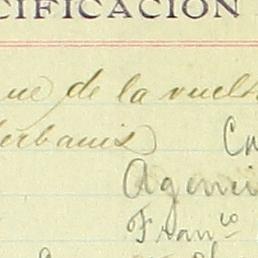 CIFICACION
ue de la vuelt
erbanis) Ca
Agenci
Franco